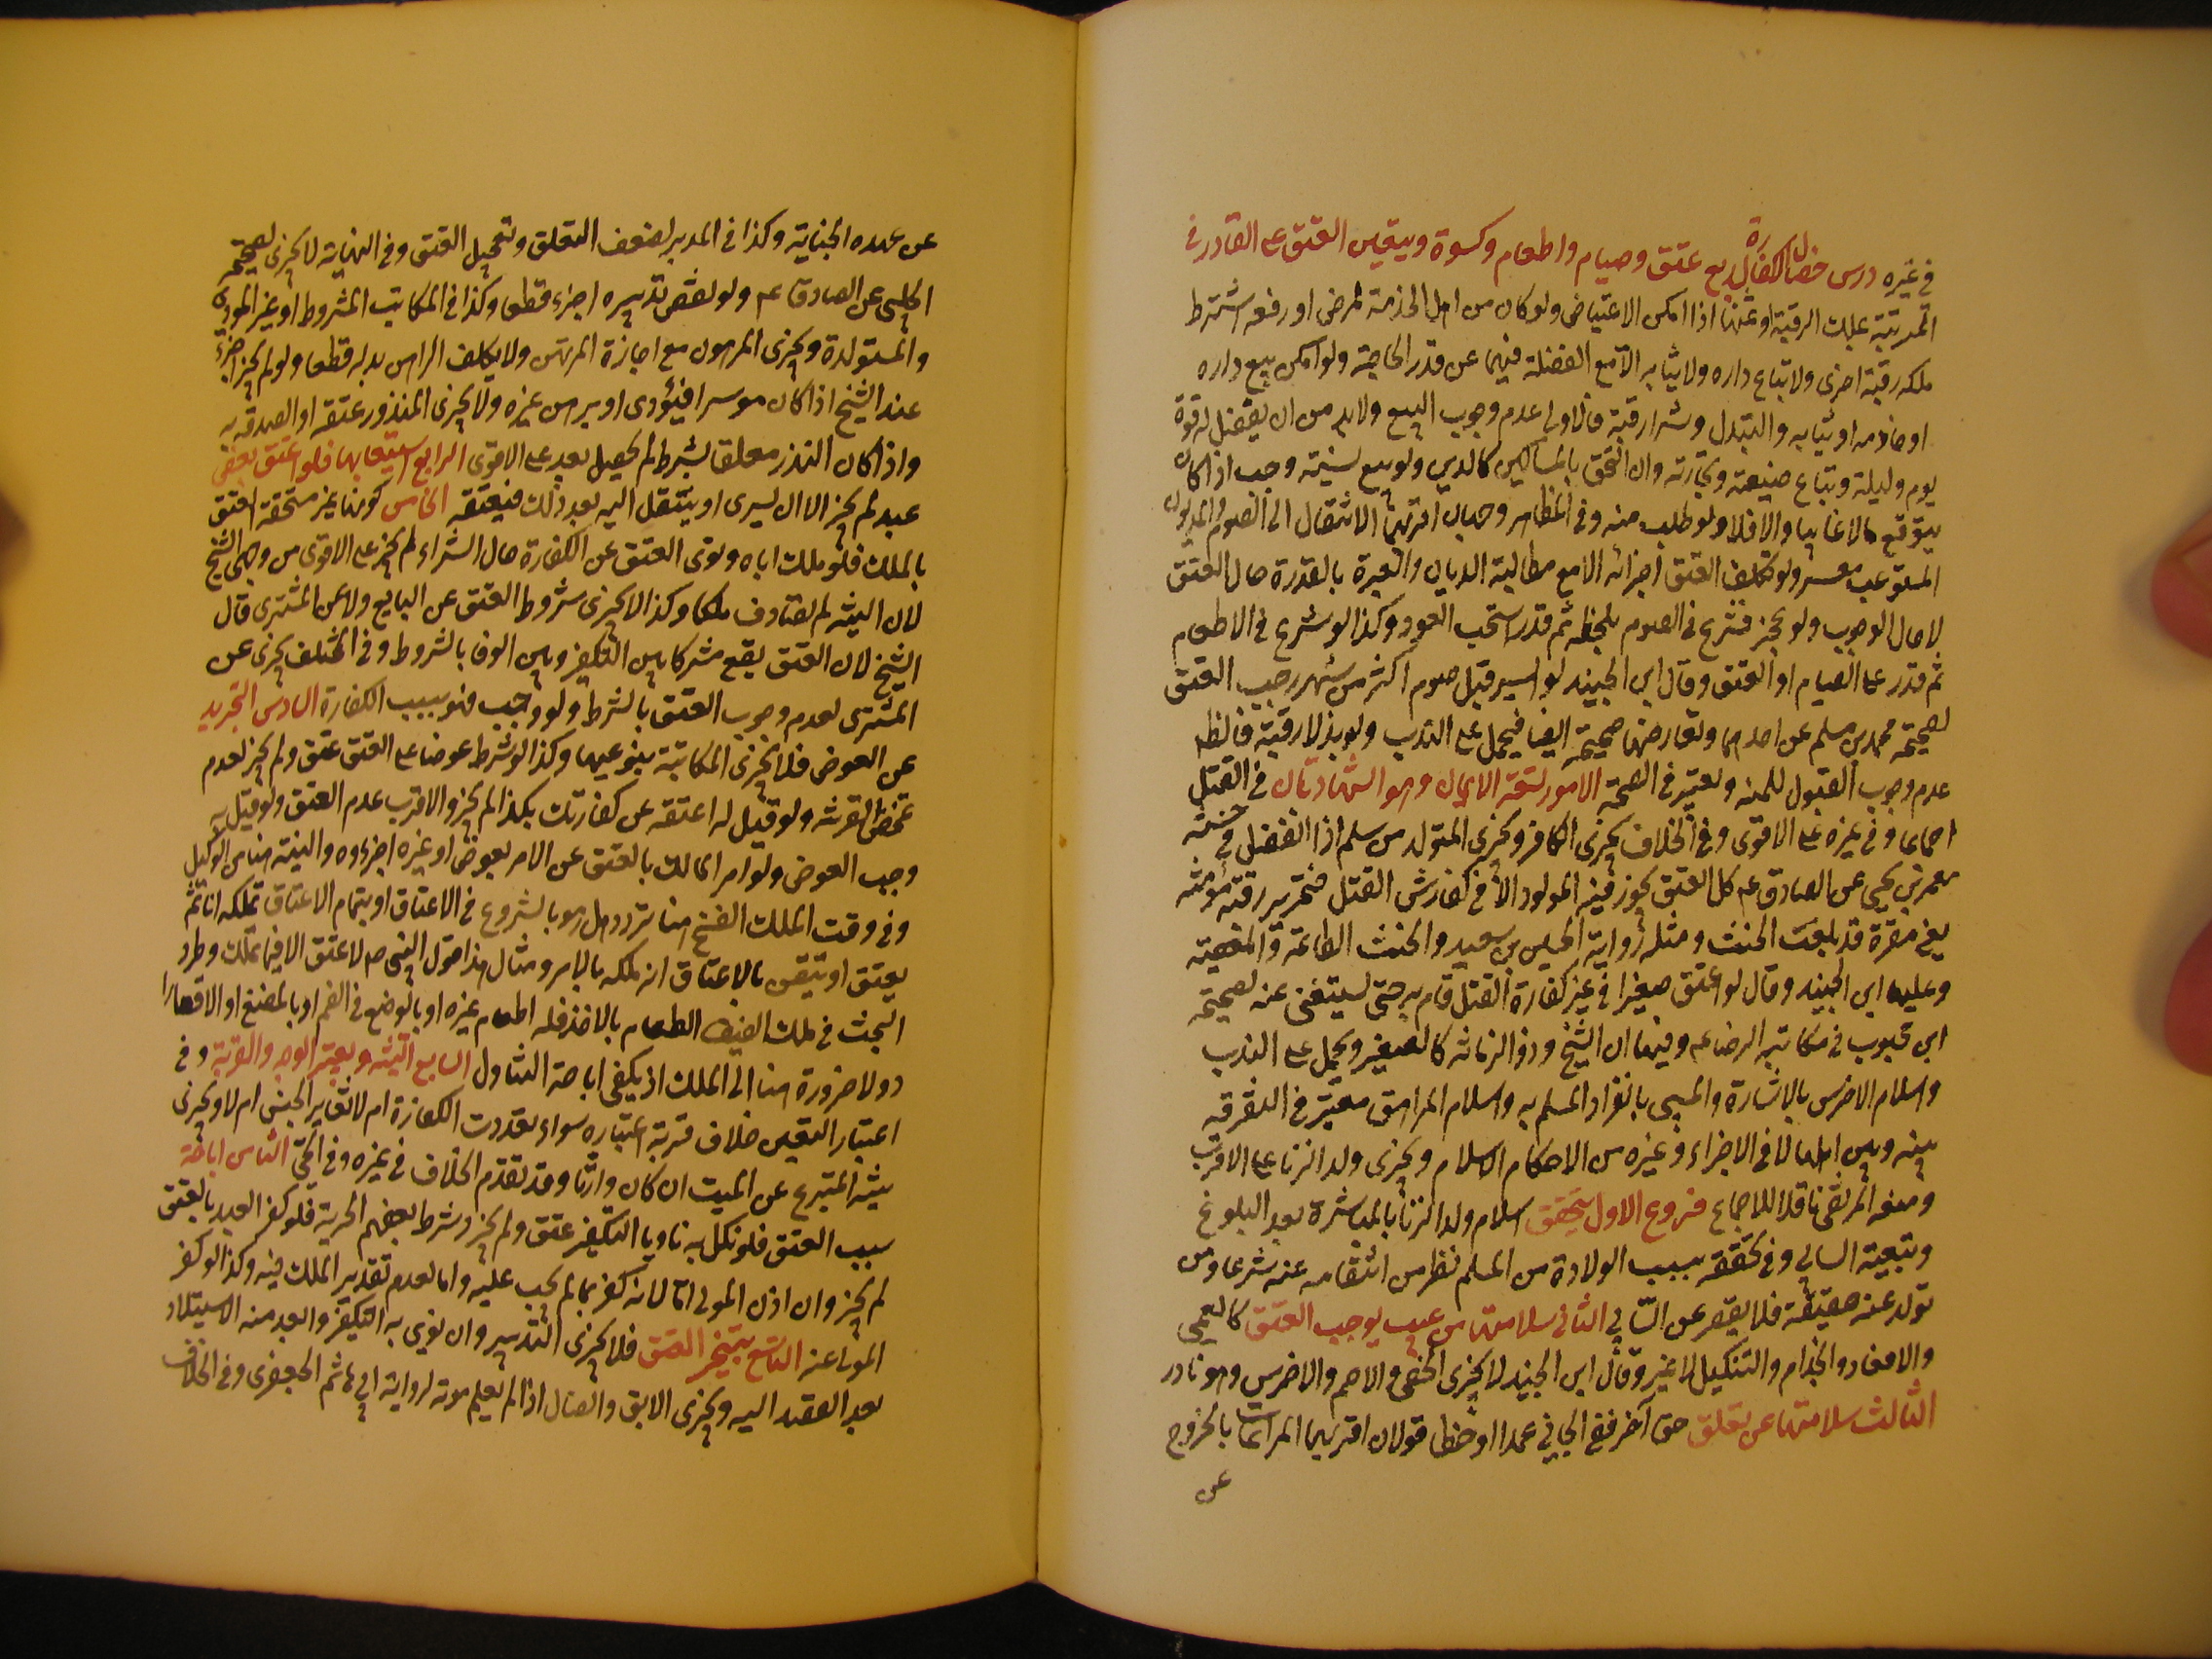 في غيره درس خصال الكفارة اربع عتق وصيام واطعام وكسوة ويتعين العتق على القادر في
المرتبة بملك الرقبة او ثمنها اذا امكن الاعتياض ولو كان من اهل الخدمة لمرض او رفعه اشترط
ملك رقبة اخرى ولا تباع داره ولا ثيابه الا مع الفضلة فيهما عن قدر الحاجة ولو امكن بيع داره
او خادمه او ثيابه والتبدل وشراء رقبة فالاولى عدم وجوب البيع ولابد من ان يفضل له قوة
يوم وليلة وتباع ضيعته وتجارته وان التحق بالمساكين كالدين ولو بيع نسيئة وجب اذا كان
يتوقع مالا غايبا والا فلا ولو طلب منه وفي الظهار وجهان اقربهما الانتقال الى الصوم والمديون
المستوعب معسر ولو تكلف العتق اجزائه الا مع مطالبة الديان والعبرة بالقدرة حال العتق
لا حال الوجوب ولو عجز فشرع في الصوم بلحظة ثم قدر استحب العود وكذا لو شرع في الاطعام
ثم قدر على الصيام او العتق وقال ابن الجنيد لو ايسر قبل صوم اكثر من شهر وجب العتق
لصحيحة محمد بن مسلم عن احدهما وتعارضها صحيحة ايضا فيحمل على الندب ولو بذل رقبة فالظاهر
عدم وجوب القبول للمنة ويعتبر في الصحة الامور تسعة الايمان وهو الشهادتان في القتل
اجماعا وفي غيره على الاقوى وفي الخلاف يجزي الكافر ويجزي المتولد من مسلم اذا انفصل في حسنة
معمر بن يحيى عن الصادق عم كل العتق يجوز فيه المولود الا في كفارة القتل فتحرير رقبة مؤمنة
يعني مقرة قد بلغت الحنث ومثله رواية الحسين بن سعيد والحنث الطاعة والمعصية
وعليها ابن الجنيد وقال لو اعتق صغيرا في غير كفارة القتل قام به حتى يستغني عنه لصحيحة
ابن محبوب في مكاتبة الرضا عم وفيها ان الشيخ وذو الزمانة كالصغير ويحمل على الندب
واسلام الاخرس بالاشارة والمسبي بانفراد المسلم به واسلام المراهق معتبر في التفرقة
بينه وبين اهله لا في الاجزاء وغيره من الاحكام الاسلام ويجزي ولد الزنا على الاقرب
ومنعه المرتضى ناقلا للاجماع فروع الاول يتحقق اسلام ولد الزنا بالمباشرة بعد البلوغ
وبتبعية السابي وفي تحققه بسبب الولادة من المسلم نظر من انتفائه عنه شرعا ومن
تولد عنه حقيقة فلا يقصر عن السابي الثاني سلامتها من عيب يوجب العتق كالعمى
والاقعاد والجذام والتنكيل لا غير وقال ابن الجنيد لا يجزي الخصي والاصم والاخرس وهو نادر
الثالث سلامتها عن تعلق حق آخر ففي الجاني عمدا او خطأ قولان اقربهما المراعات بالخروج
عن
عن عهده الجناية وكذا في المدبر لضعف التعلق وتعجيل العتق وفي النهاية لا يجزي لصحيحة
الحلبي عن الصادق عم ولو نقض تدبيره اجزء قطعا وكذا في المكاتب المشروط او غير المودي
والمستولدة ويجزي المرهون مع اجازة المرتهن ولا يكلف الراهن بدله قطعا ولو لم يجز اجزء
عند الشيخ اذا كان موسرا فيؤدى او يرهن غيره ولا يجزي المنذور عتقه او الصدقة به
واذا كان النذر معلقا بشرط لم يحصل بعد على الاقوى الرابع استيعابها فلو اعتق بعض
عبد لم يجز الا ان يسري او ينتقل اليه بعد ذلك فيعتقه الخامس كونها غير مستحقة العتق
بالملك فلو ملك اباه ونوى العتق عن الكفارة حال الشراء لم يجز على الاقوى من وجهي الشيخ
لان النية لم تصادف ملكا وكذا لا يجزي مشروط العتق عن البايع ولا عن المشتري قال
الشيخ لان العتق يقع مشتركا بين التكفير وبين الوفا بالشروط وفي المختلف يجزي عن
المشتري لعدم وجوب العتق بالشرط ولو وجب فهو بسبب الكفارة السادس التجريد
عن العوض فلا يجزي المكاتبة بنوعيها وكذا لو شرط عوضا على العتق عتق ولم يجز لعدم
تمحض القربة ولو قيل له اعتقه عن كفارتك بكذا لم يجز والاقرب عدم العتق ولو قيل به
وجب العوض ولو امر المالك بالعتق عن الامر بعوض او غيره اجزءه والنية هنا من الوكيل
وفي وقت الملك الضمني هنا تردد هل هو بالشروع في الاعتاق او بتمام الاعتاق تملكه انا ثم
يعتق او يتبين بالاعتاق انه ملكه بالامر ومثال هذا قول النبي ص لا عتق الا فيما تملك وطرد
البحث في ملك الضيف الطعام بالاخذ فله اطعام غيره او بالوضع في الفم او بالمضغ او الازدراد
ولا ضرورة هنا الى الملك اذ يكفي اباحة التناول السابع النية ويعتبر الوجه والقربة وفي
اعتبار التعيين خلاف قربة اعتباره سواء تعددت الكفارة ام لا تغاير الجنس ام لا ويجزي
نية المتبرع عن الميت ان كان وارثا وقد تقدم الخلاف في غيره وفي الحي الثامن اباحة
سبب العتق فلو نكل به ناويا التكفير عتق ولم يجز وشرط بعضهم الحرية فلو كفر العبد بالعتق
لم يجز وان اذن المولى اما لانه كفر بما لم يجب عليه واما لعدم تقدير الملك فيه وكذا لو كفر
المولى عنه التاسع تنجيز العتق فلا يجزي التدبير وان نوى به التكفير وابعد منه الاستيلاد
بعد القصد اليه ويجزي الابق والضال اذا لم يعلم موته لرواية ابي هاشم الجعفري وفي الخلاف